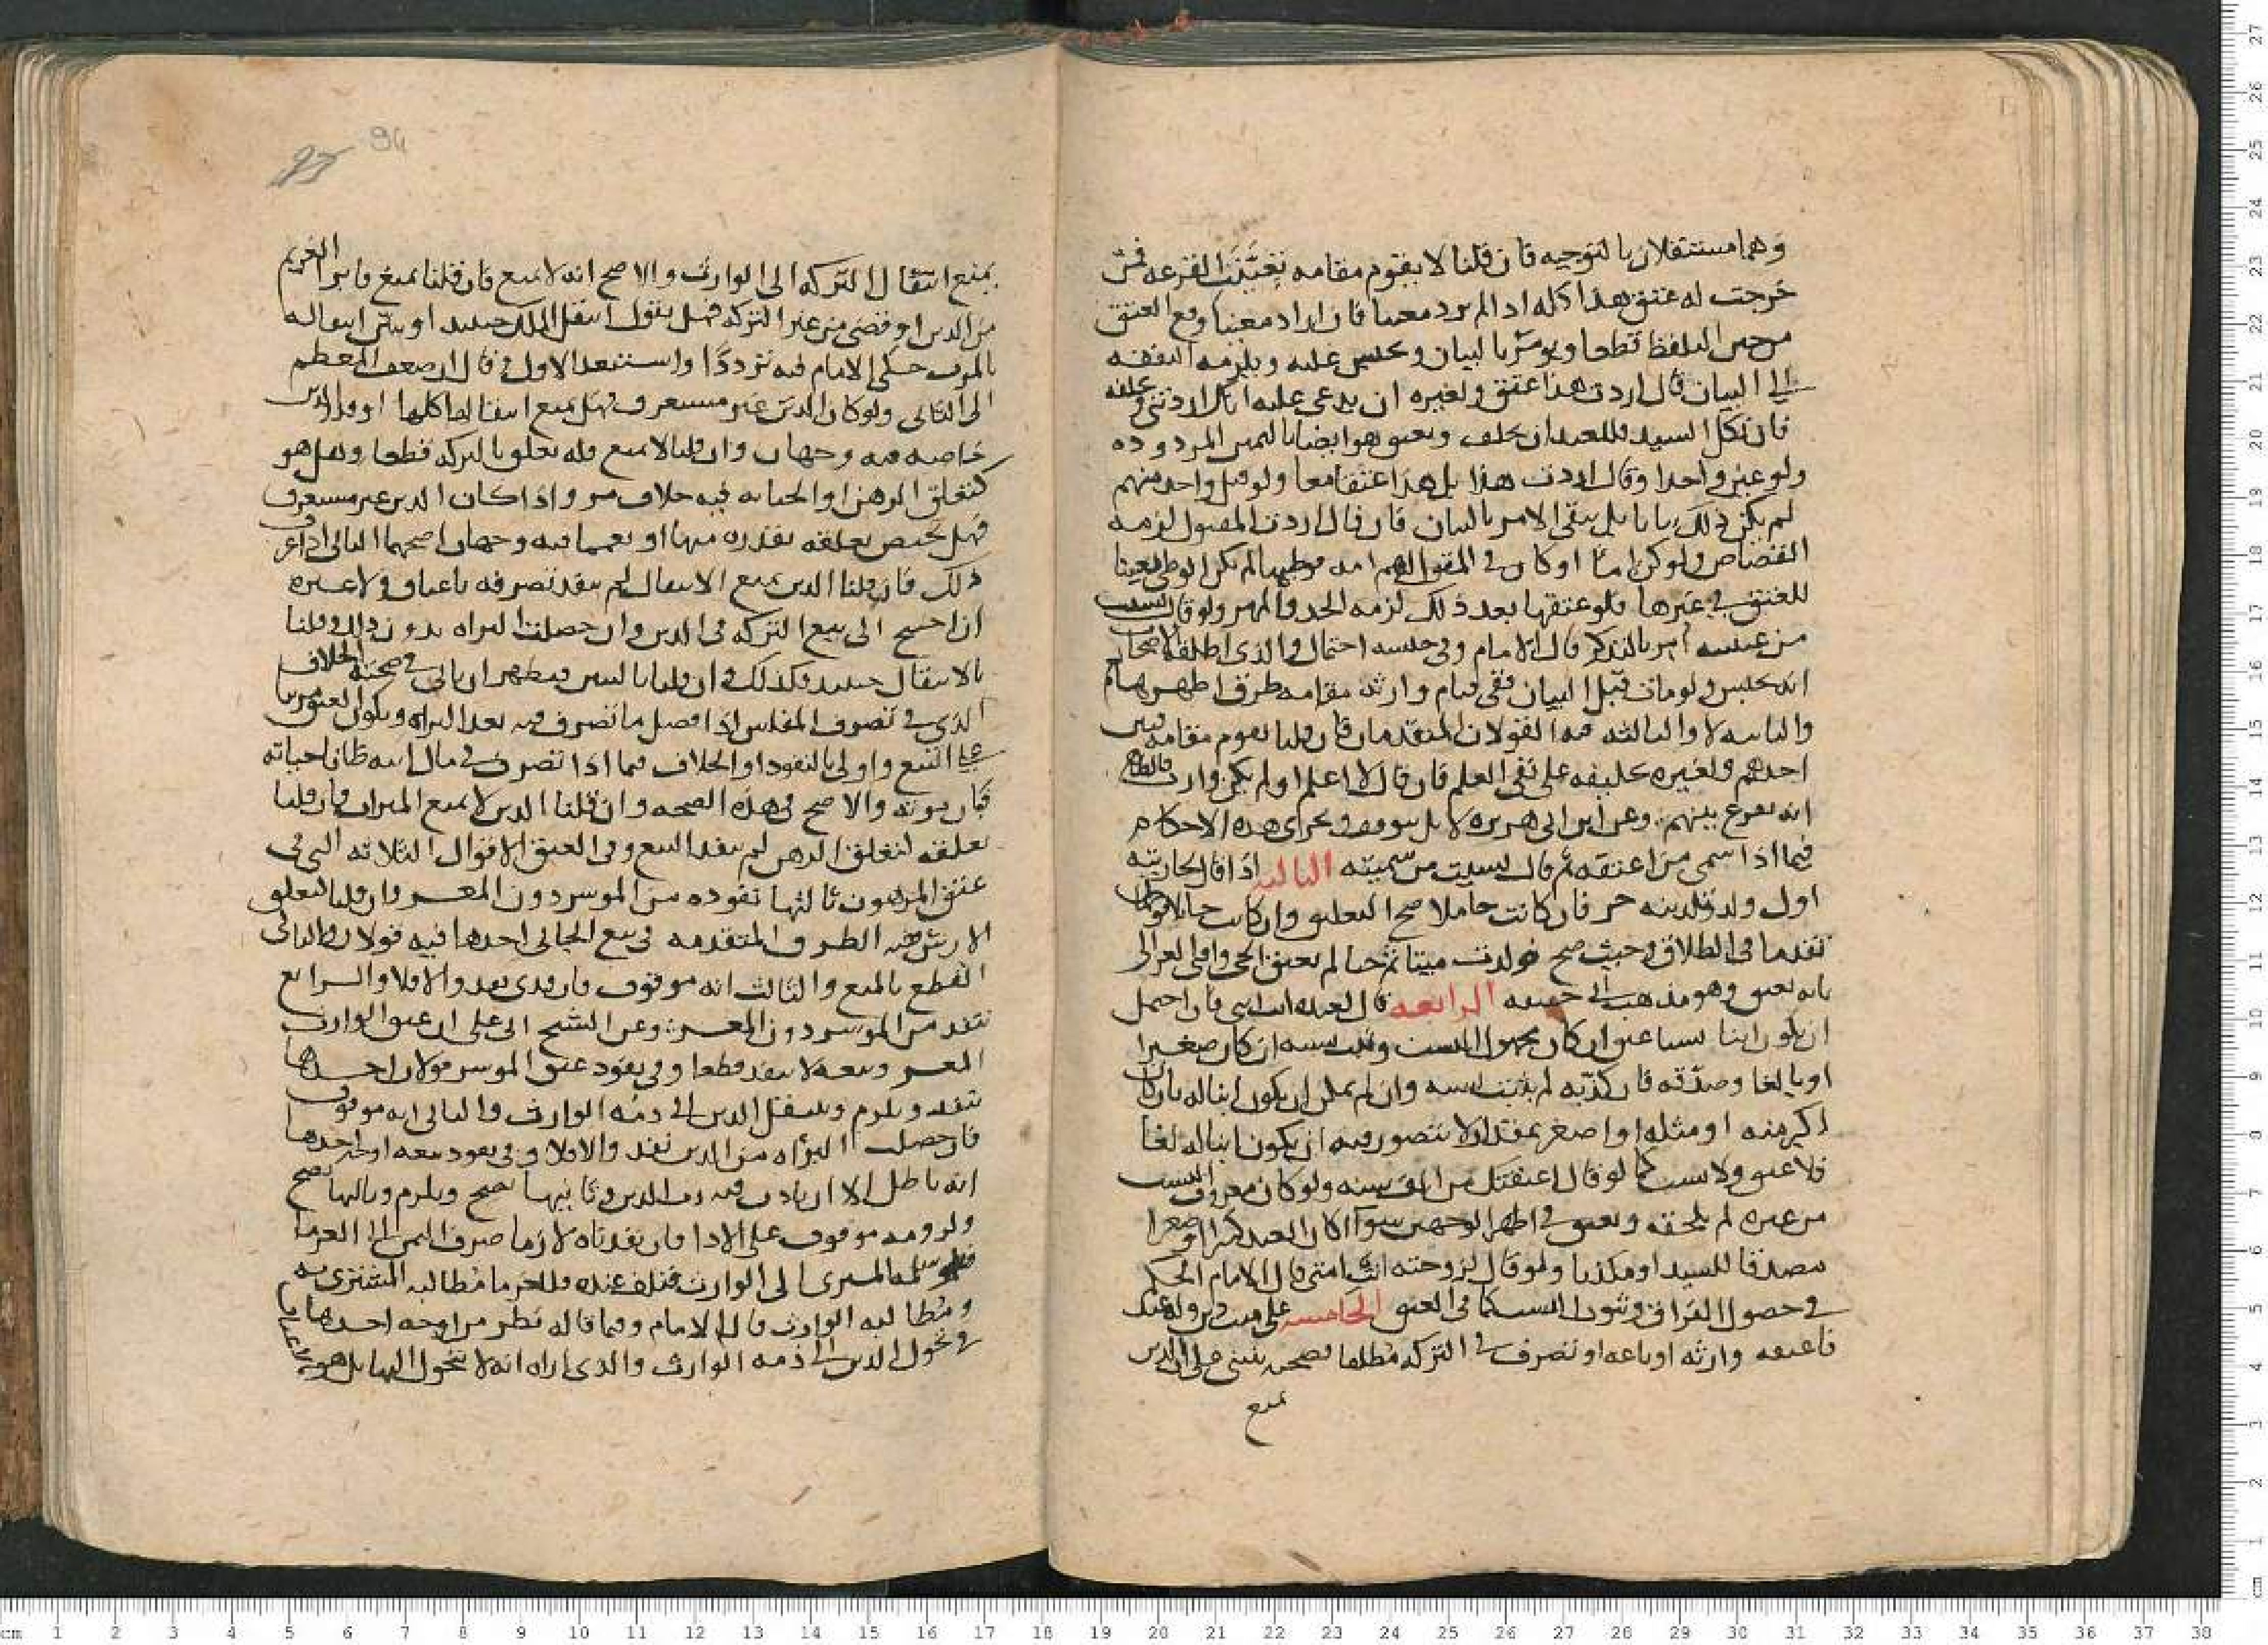 وهما مستقلان بالتوجيه فان قلنا لا يقوم مقامه تعينت القرعه فمن
خرجت له عتق هذا كله اذا لم يرد معينا فان اراد معينا وقع العتق
من حين اللفظ قطعا ويومر بالبيان ويحبس عليه ويلزمه النفقه
الى البيان فان قال اردت هذا عتق ولغيره ان يدعى عليه انك اردتنى
فان نكل السيد فللعبد ان يحلف ويعتق هو ايضا باليمين المردوده
ولو عين واحدا وقال اردت هذا بل هذا عتقا معا ولو قتل واحد منهم
لم يكن ذلك بيانا بل يبقى الامر بالبيان فان قال اردت المقتول لزمه
القصاص ولو كن اما او كان فى المقول لهم امه فوطيها لم يكن الوطى تعيينا
للعتق فى غيرها فلو عتقها بعد ذلك لزمه الحد والمهر ولو قال نسيت
من عينته امر بالتذكر قال الامام وفى حبسه احتمال والذى اطلقه الاصحاب
انه يحبس ولو مات قبل البيان ففى قيام وارثه مقامه طرق اظهرها نعم
والثانيه لا والثالثه فيه القولان المتقدمان فان قلنا يقوم مقامه فبين
احدهم ولغيره تحليفه على نفى العلم فان قال لا اعلم او لم يكن وارث
انه يقرع بينهم وعن ابن ابى هريره لا بل يوقف ويجرى هذه الاحكام
فيما اذا سمى من اعتقه ثم قال نسيت من سميته الثالثه اذا قال لجاريته
اول ولد تلدينه حر فان كانت حاملا صح التعليق وان كانت حايلا
تقدما فى الطلاق وحيث صح فولدت ميتا ثم حيا لم يعتق الحى
بانه يعتق وهو مذهب ابى حنيفه الرابعه قال لعبده انت ابنى فان احتمل
ان يكون ابنا نسبا عتق ان كان مجهول النسب وثبت نسبه ان كان صغيرا
او بالغا وصدقه فان كذبه لم يثبت نسبه وان لم يمكن ان يكون ابنا له بان كان
اكبر منه او مثله او اصغر بمقدار لا يتصور فيه ان يكون ابنا له لغا
فلا عتق ولا نسب كما لو قال اعتقتك من الف سنه ولو كان معروف النسب
من غيره لم يلحقه ويعتق فى اظهر الوجهين سوا كان العبد كبيرا او صغيرا
مصدقا للسيد او مكذبا ولو قال لزوجته انت ابنتى قال الامام الحكم
فى حصول الفراق وثبوت النسب كما فى العتق الخامسه على ميت دين وله عبد
فاعتقه وارثه او باعه او تصرف فى التركه مطلقا فصحته ينبنى على ان الدين
يمنع
94
يمنع انتقال التركه الى الوارث والاصح انه لا يمنع فان قلنا يمنع فابرا الغريم
من الدين او قضى من غير التركه فهل نقول انتقل الملك حينيد او يتبين انتقاله
بالموت حكى الامام فيه ترددا واستبعد الاول
الى الثانى ولو كان الدين غير مستغرق فهل يمنع انتقالها كلها او قدر الدين
خاصه فيه وجهان وان قلنا لا يمنع فله تعلق بالتركه قطعا وهل هو
كتعلق الرهن او الجنايه فيه خلاف مر واذا كان الدين غير مستغرق
فهل يختص تعلقه بقدره منها او يعمها فيه وجهان اصحهما الثانى
ذلك فان قلنا الدين يمنع الانتقال لم ينفذ تصرفه باعتاق ولا غيره
ان احتيج الى بيع التركه فى الدين وان حصلت البراه بدون ذلك وقلنا
بالانتقال حينيد فكذلك وان قلنا بالتبين فيظهر ان ياتى فى صحته الخلاف
الذى فى تصرف المفلس اذا فضل ما تصرف فيه بعد البراه ويكون العتق مرتبا
على البيع واولى بالنفوذ او الخلاف فيما اذا تصرف فى مال ابيه ظانا حياته
فبان موته والاصح فى هذه الصحه وان قلنا الدين لا يمنع الميراث فان قلنا
تعلقه كتعلق الرهن لم ينفذ البيع وفى العتق الاقوال الثلاثه التى فى
عتق المرهون ثالثها نفوذه من الموسر دون المعسر وان قلنا كتعلق
الارش ففيه الطرق المتقدمه فى بيع الجانى احدها فيه قولان والثانى
القطع بالمنع والثالث انه موقوف فان فدى نفذ والا فلا والرابع
ينفذ من الموسر دون المعسر وعن الشيخ ابى على ان عتق الوارث
المعسر وبيعه لا ينفذ قطعا وفى نفوذ عتق الموسر قولان احدها
ينفذ ويلزم وينتقل الدين الى ذمه الوارث والثانى انه موقوف
فان حصلت البراه من الدين نفذ والا فلا وفى نفوذ بيعه اوجه احدها
انه باطل الا ان ياذن فيه رب الدين وثانيها يصح ويلزم وثالثها يصح
ولزومه موقوف على الادا فان نفذناه لازما صرف الثمن الى الغرما
فلو سلمه المشترى الى الوارث فتلف عنده فللغرما مطالبه المشترى به
ومطالبه الوارث قال الامام وفيما قاله نظر من اوجه احدها
فى تحول الدين الى ذمه الوارث والذى اراه انه لا يتحول اليها بل هو